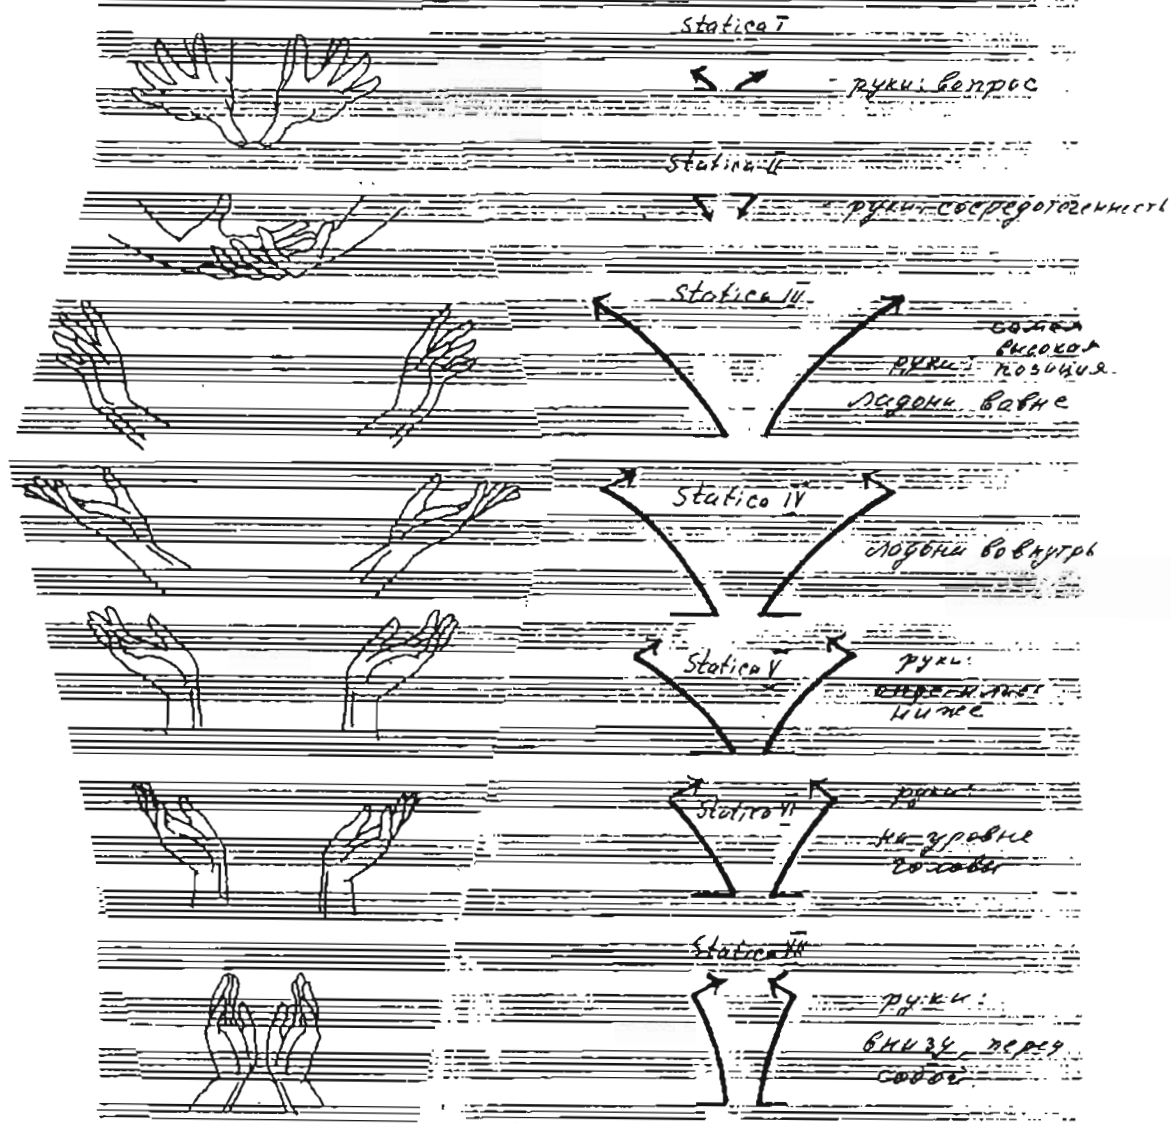 Statica I
руки: вопрос
Statica II
руки: сосредоточенность
Statica III
самая
высокая
руки: позиция.
ладони вовне
Statica IV
ладони вовнутрь
Statica V
руки:
ниже
Statica VI
руки:
на уровне
головы
Statica VII
руки:
внизу, перед
собой